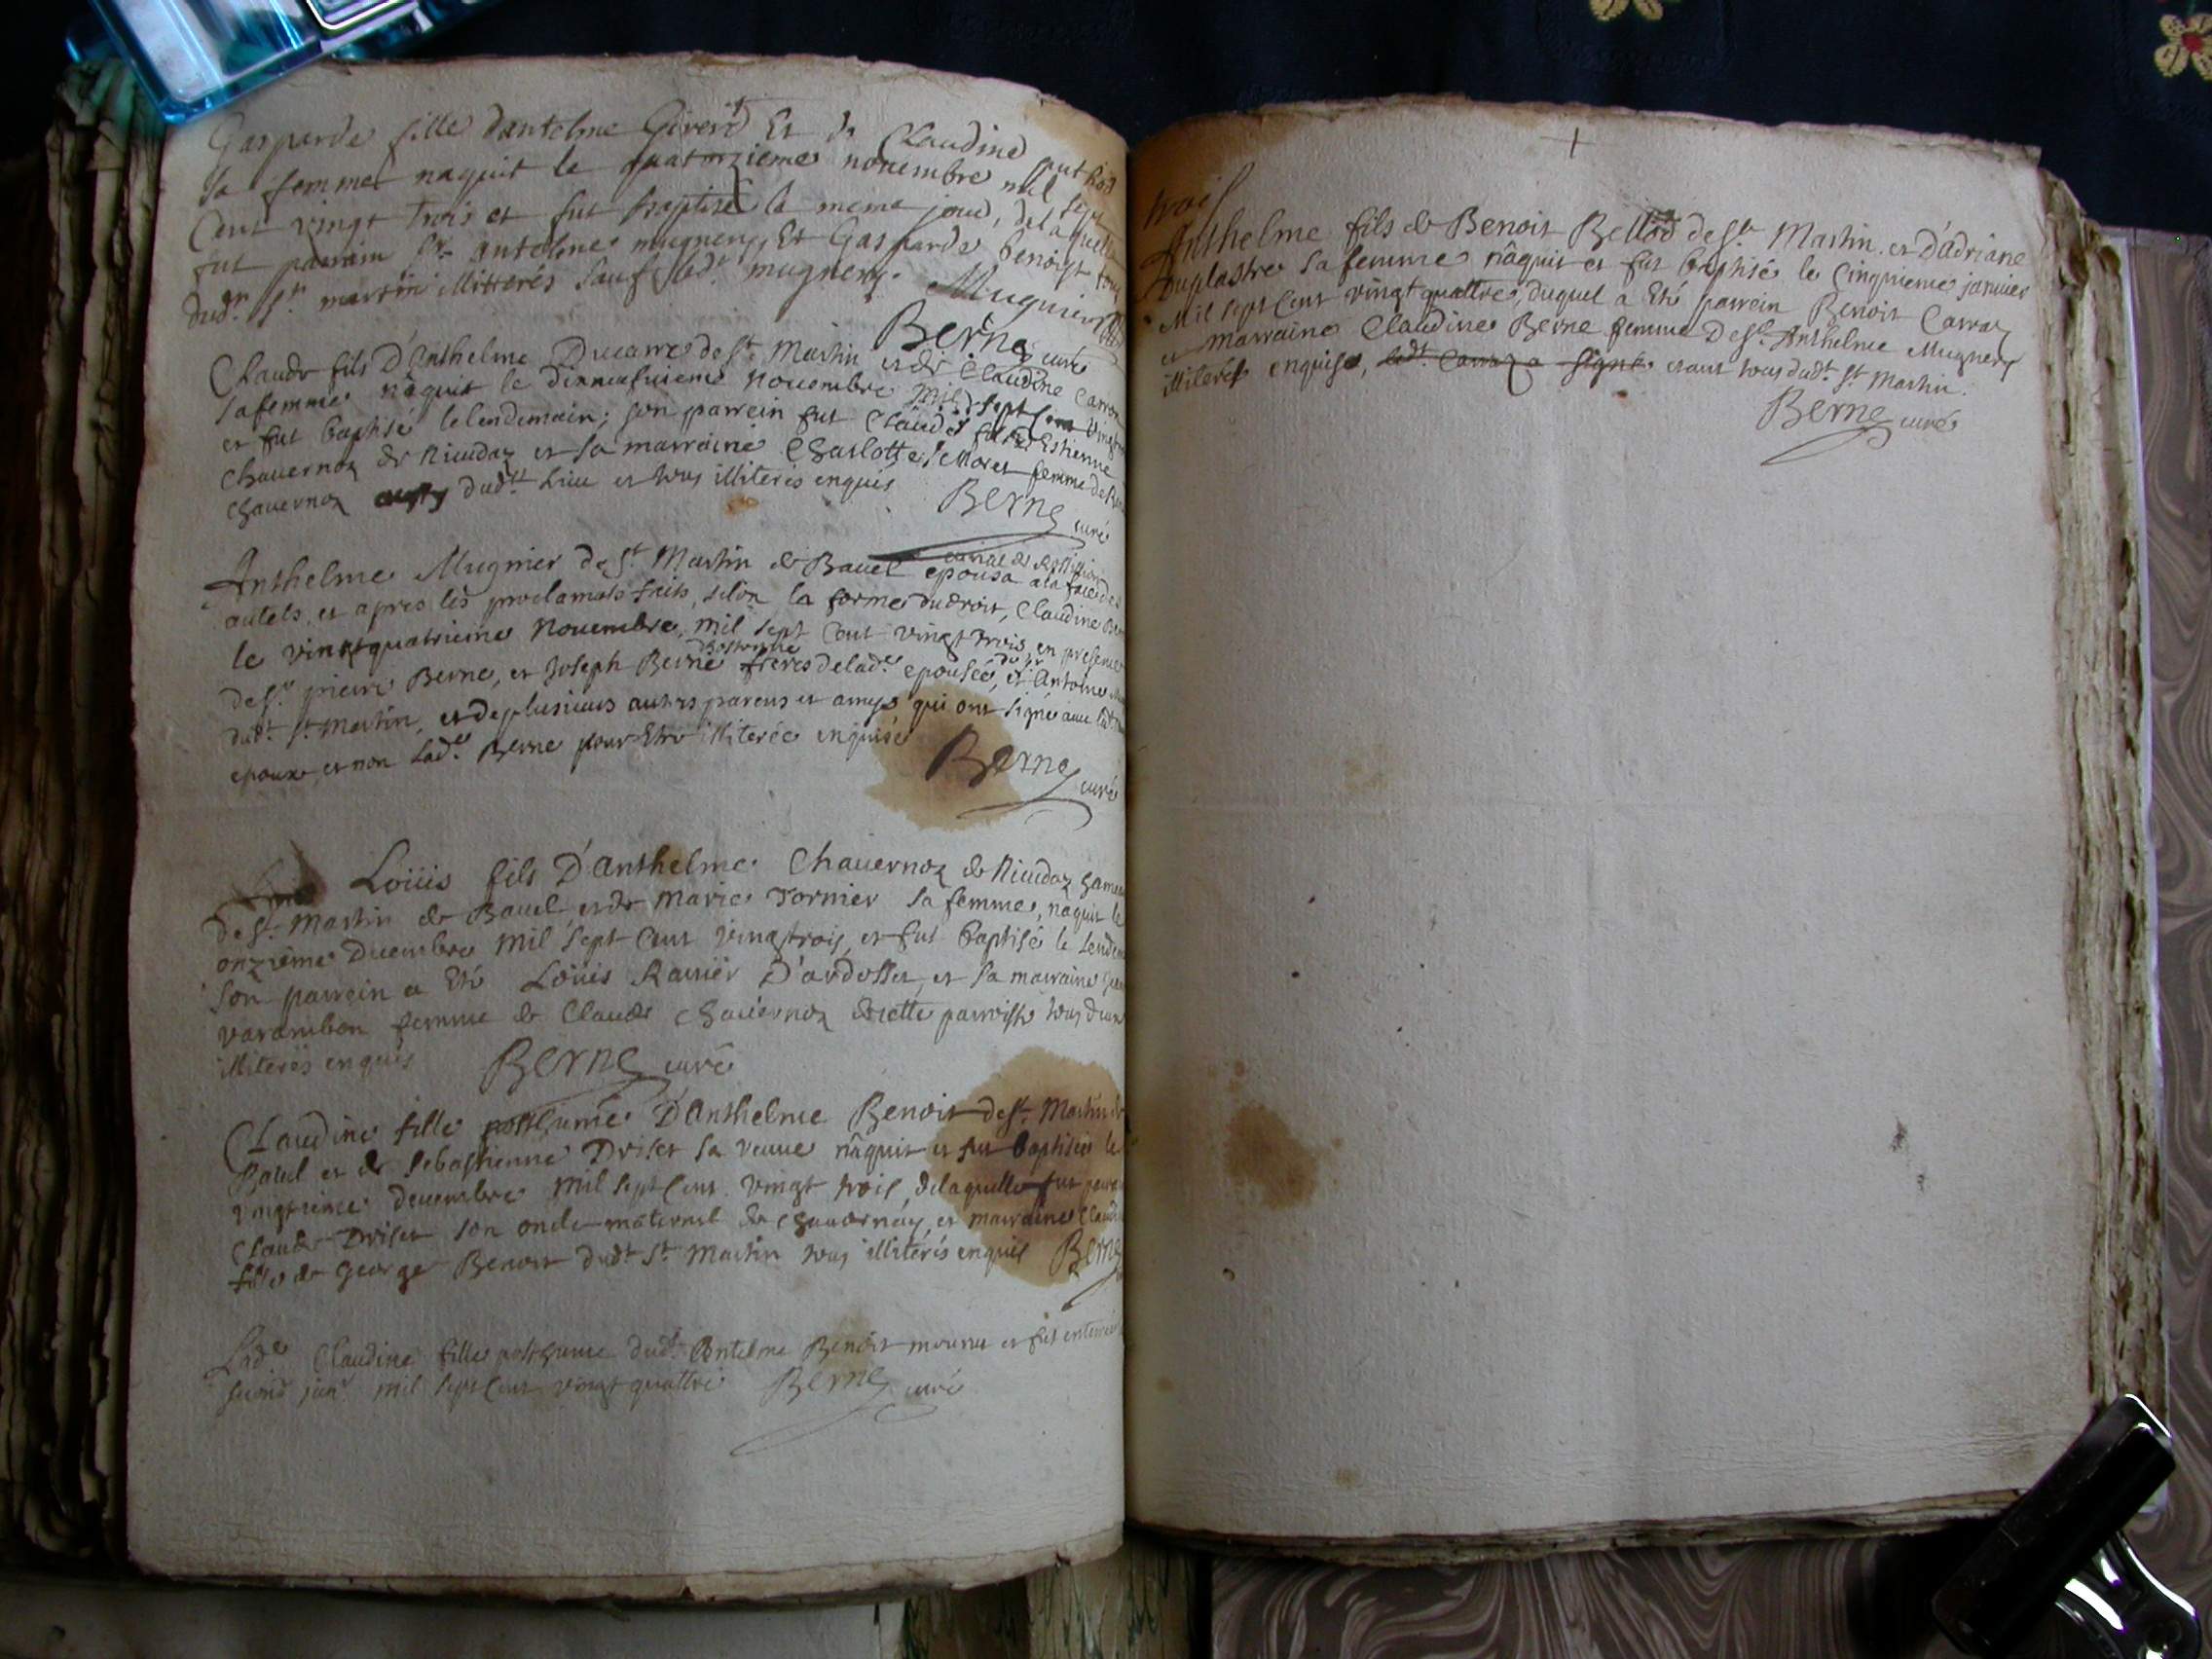 Gasparde fille dantelme Girerd Et de Claudine
sa femme naquit le quatorzieme nouembre mil sept
Cent vingt trois et fut baptise la meme jour, de laquelle
fut parrain Sr. antelme mugnery Et Gasparde benoist tous
dudt. St. martin illitterés sauf ledt. mugnery. Mugnier
Berne curé
Claude fils D'Anthelme Ducarre de St. Martin et de Claudine Carron
sa femme naquit le dixneufuieme nouembre mil sept Cent Vingt
et fut baptisé le lendemain; son parrein fut Claude fils d'Estienne
Chauernoz de Rieudaz et sa marraine Charlotte Moret femme de
Chauernoz dudt. Lieu et tous illiterés enquis
Berne curé
Anthelme Mugnier de St. Martin de Bauel epousa a la face des
autels, et apres les proclamats faits, selon la forme du droit, Claudine
le vingtquatrieme Nouembre, mil sept Cent vingt trois, en presence
de Sr. pierre Berne, et Joseph Berne freres de lade. epousée, et Antoine
dudt. St. Martin, et de plusieurs autres parens et amys qui ont signé auec ledt.
epoux, et non lade. Berne pour Etre illiterée enquise
Berne curé
Loüis fils D'Anthelme Chauernoz de Rieudaz hameau
de St. Martin de Bauel et de Marie Tornier sa femme, naquit le
onzieme Decembre Mil sept Cent vingt trois, et fut baptisé le Lendem
son parrein a Eté Loüis Rauier D'ardosset, et sa marraine
varambon femme de Claude Chauernoz de cette parroisse tous deux
illiterés enquis Berne curé
Claudine fille posthume D'Anthelme Benoit de St. Martin de
Bauel et de Sebastienne Driset sa veuue nâquit et fut baptisée le
vingtieme decembre mil sept Cent vingt trois, de laquelle fut parrein
Claude Driset son oncle maternel de chauornay, et marraine Claud
fille de George Benoit dudt. St. Martin tous illitérés enquis Berne
Lade. Claudine fille posthume dudt. Antelme Benoit mourut et fut enterrée
second janr. mil sept Cent vingt quattre Berne curé
trois
Anthelme fils de Benoit Bellod de St. Martin et d'Adriane
Duplastre sa femme nâquit et fut baptisé le Cinquieme januier
Mil sept Cent vingt quattre, duquel a Eté parrein Benoit Carraz
et marraine Claudine Berne femme De Sr. Anthelme Mugnery
illiterés enquise, ledt. Carraz a signé etant tous dudt. St. Martin.
Berne curé